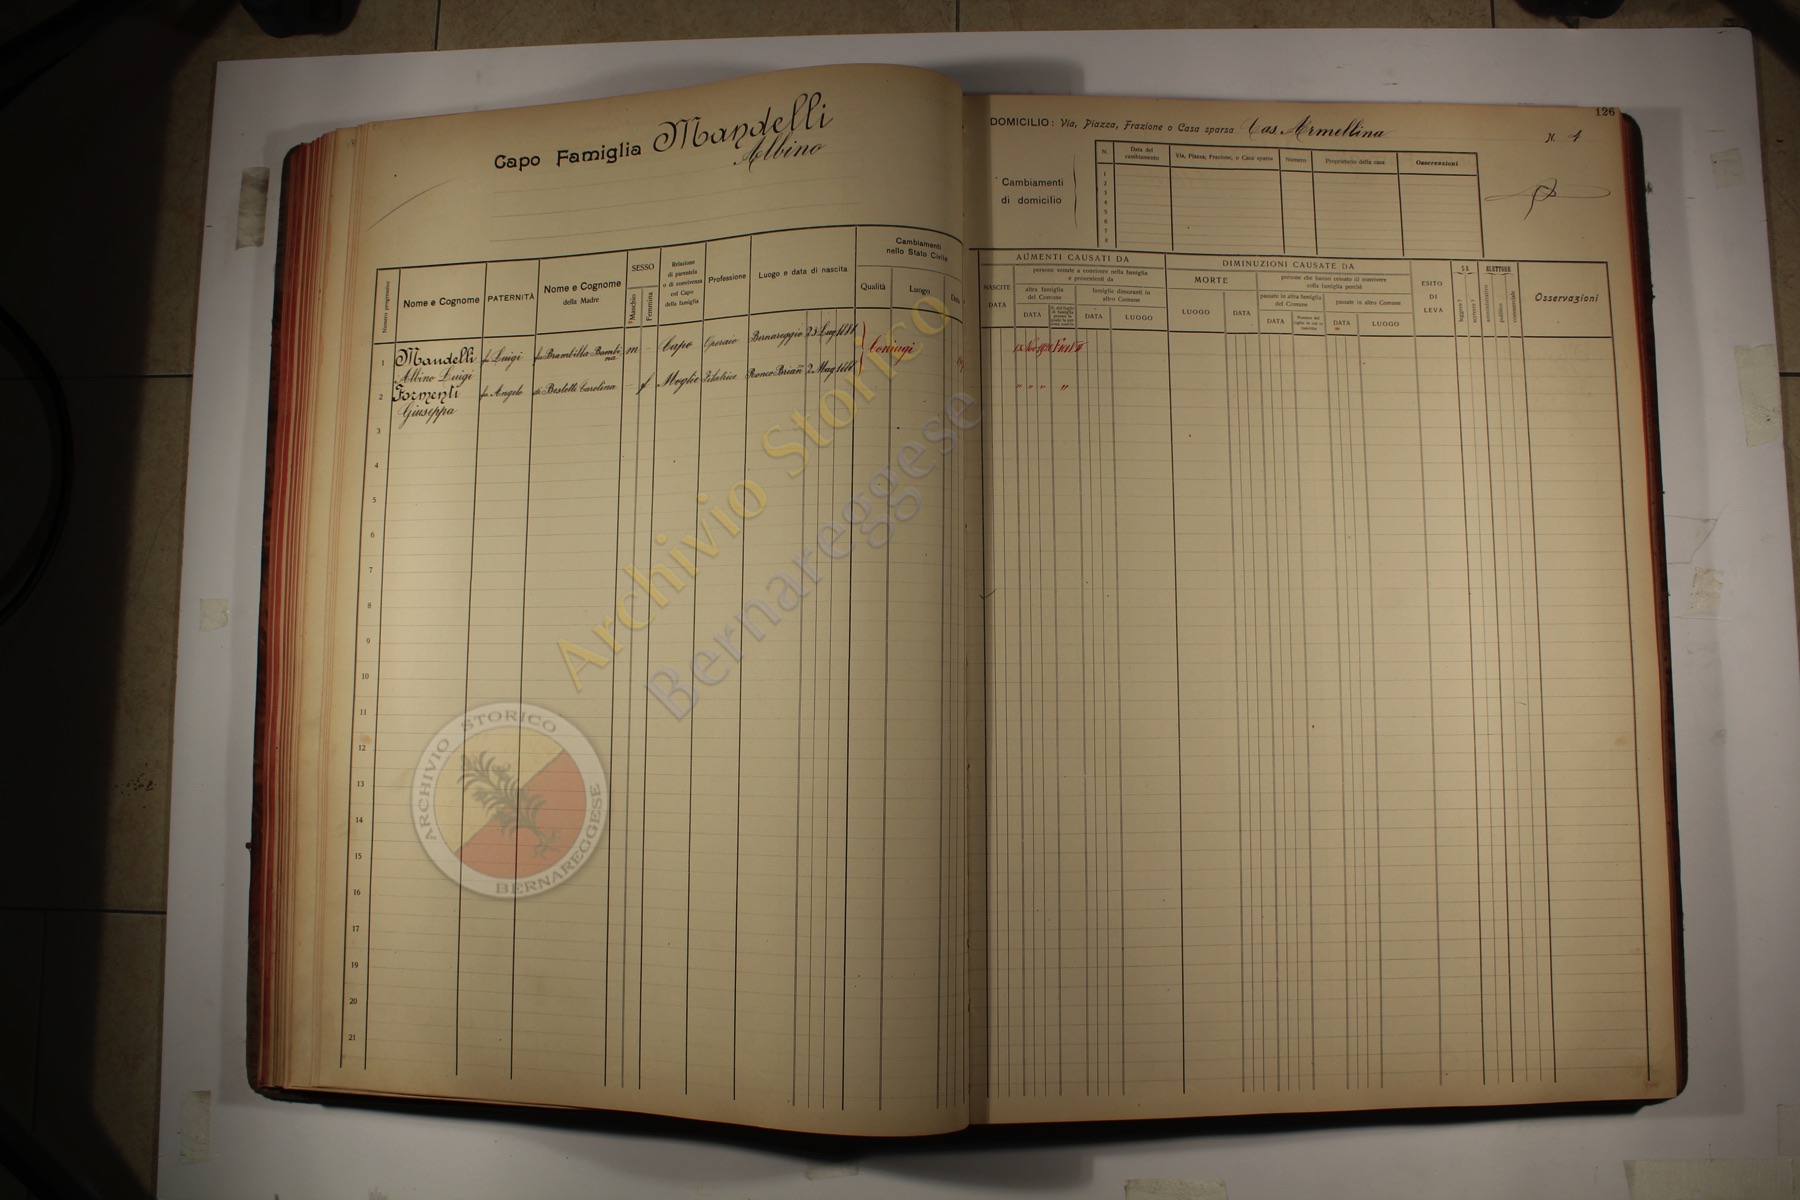 Capo Famiglia Mandelli
Albino
Nome e Cognome
PATERNITÀ
Nome e Cognome
della Madre
SESSO
Maschio
Femmina
Relazione
di parentela
o di convivenza
col Capo
della famiglia
Professione
Luogo e data di nascita
Cambiamenti
nello Stato Civile
Qualità
Luogo
Data
Numero progressivo
1
Mandelli
Albino Luigi
fu Luigi
fu Brambilla Bambina
m
Capo
Operaio
Bernareggio 23 Lug
Coniugi
2
Formenti
Giuseppa
fu Angelo
Carolina
f
Moglie
Ronco Brian 2 Mag
3
4
5
6
7
8
9
10
11
12
13
14
15
16
17
18
19
20
21
126
DOMICILIO: Via, Piazza, Frazione o Casa sparsa Cas. Armellina
N. 1
Cambiamenti
di domicilio
N.
Data del
cambiamento
Via, Piazza, Frazione, o Casa sparsa
Numero
Proprietario della casa
Osservazioni
1
2
3
4
5
6
7
8
AUMENTI CAUSATI DA
persone venute a convivere nella famiglia
e provenienti da
NASCITE
DATA
altra famiglia
del Comune
DATA
famiglie dimoranti in
altro Comune
DATA
LUOGO
DIMINUZIONI CAUSATE DA
MORTE
LUOGO
DATA
persone che hanno cessato di convivere
colla famiglia perchè
passate in altra famiglia
del Comune
DATA
passate in altro Comune
DATA
LUOGO
ESITO
DI
LEVA
SA
leggere?
scrivere?
ELETTORE
amministrativo
politico
commerciale
Osservazioni
" " " "
Archivio Storico
Bernareggese
ARCHIVIO STORICO
BERNAREGGESE